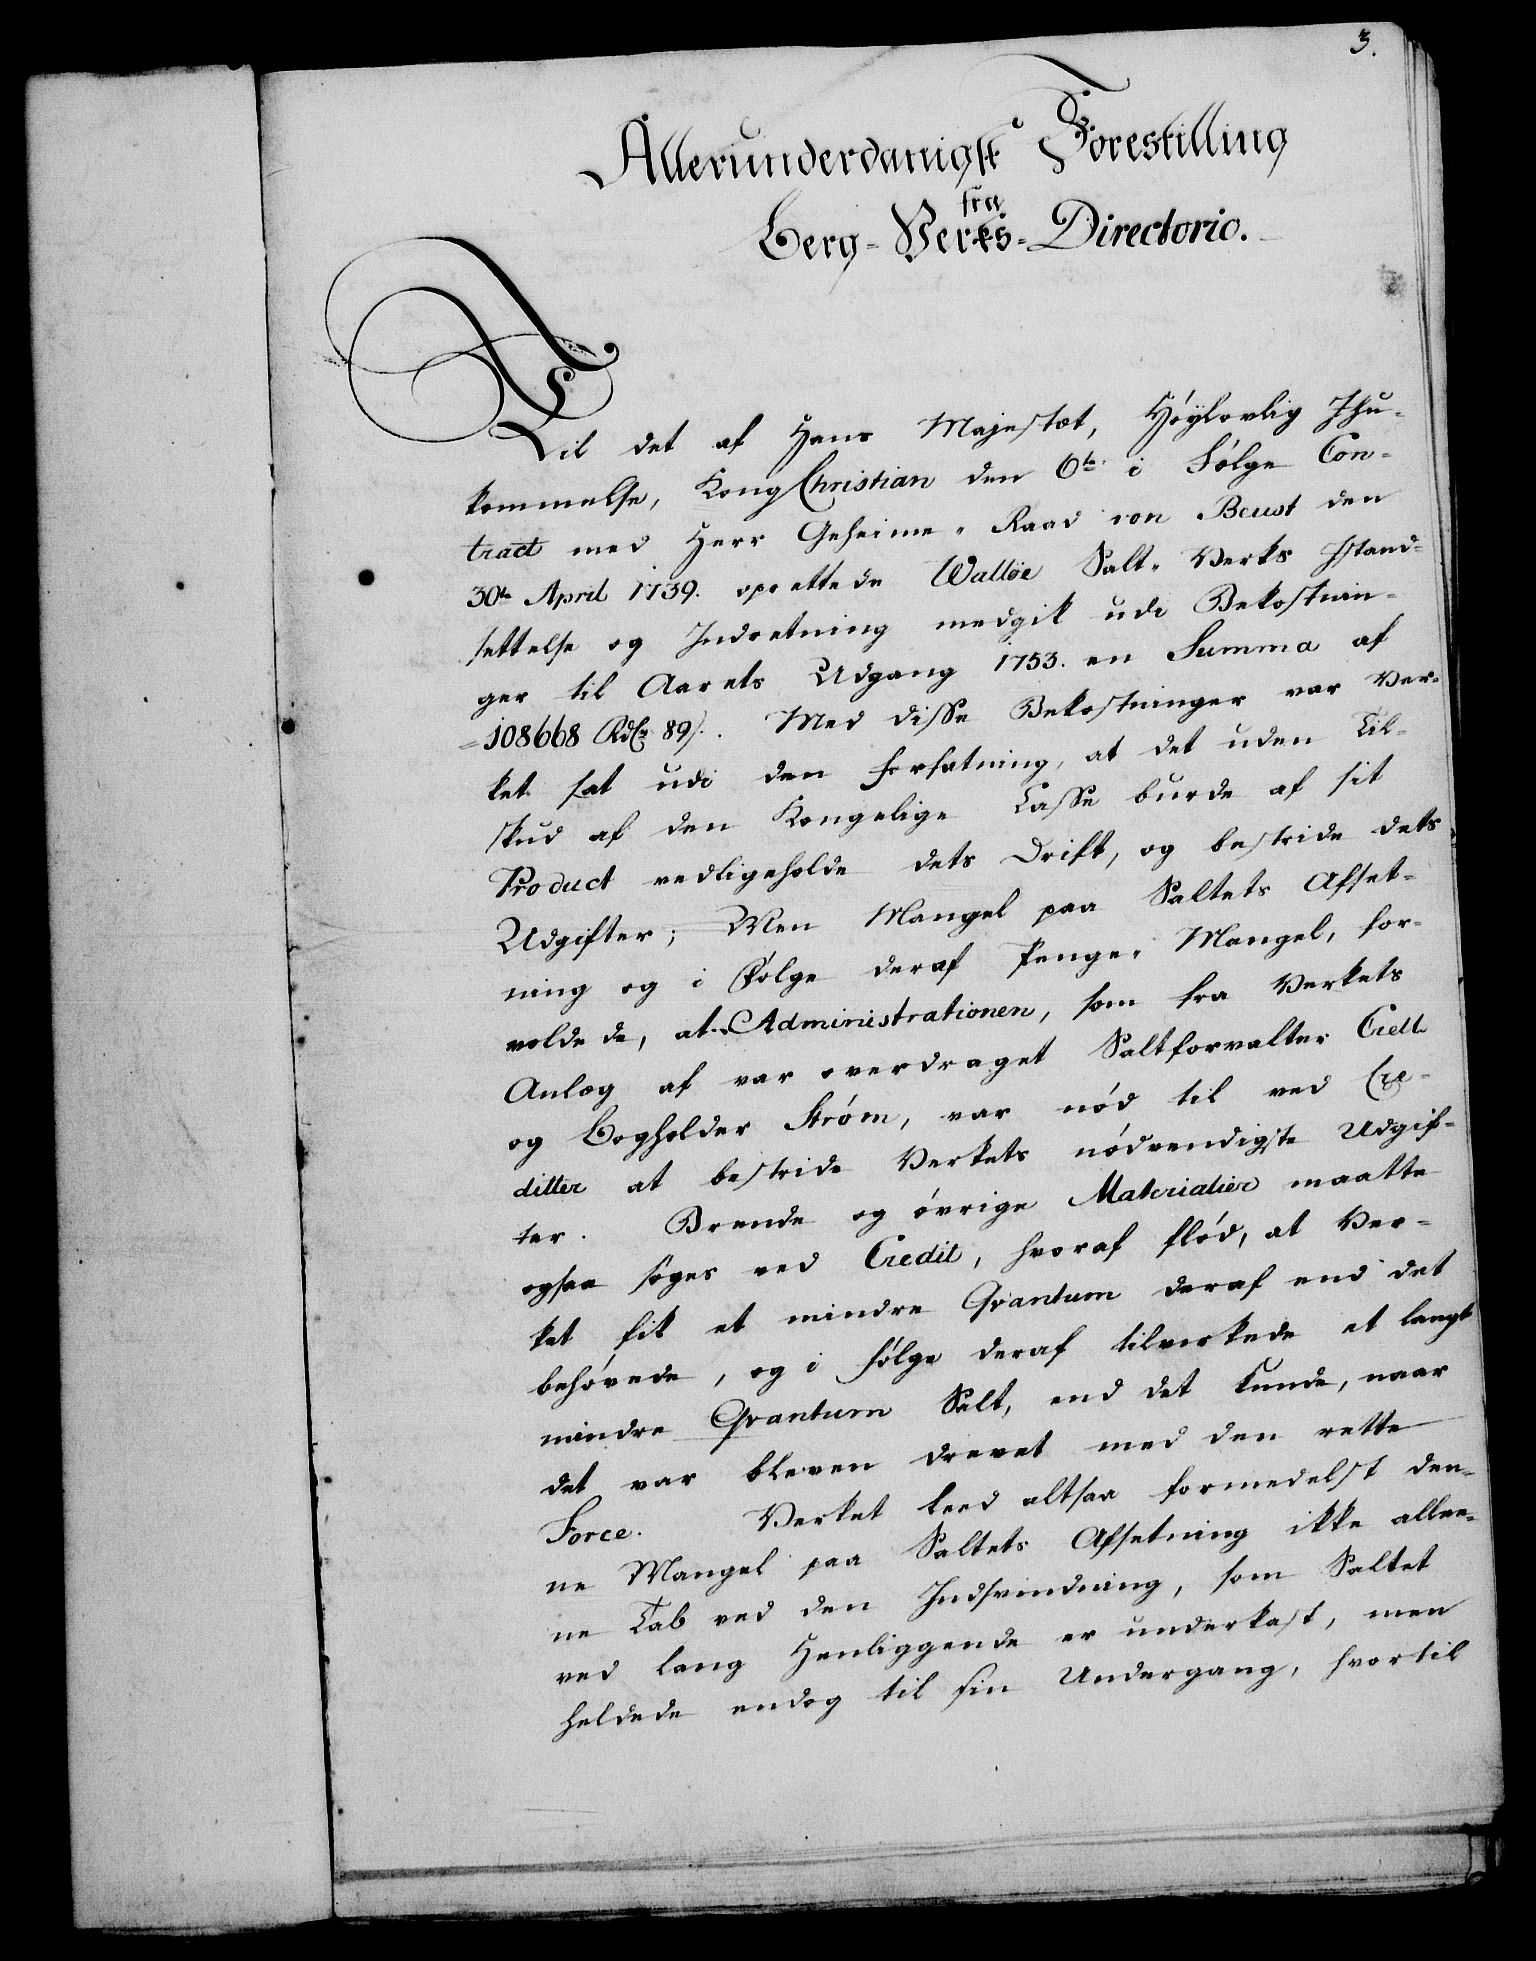 3.
Allerunderdanigst Forestilling
fra
Berg-Verks-Directorio.
Til det af Hans Majestæt, Høylovlig Ihu-
kommelse, Kong Christian den 6te i Følge Con-
tract med Herr Geheime-Raad von Beust den
30te April 1739. oprettede Walløe Salt-Verks Istand-
settelse og Indretning medgik udi Bekostnin-
ger til Aarets Udgang 1753. en Summa af
108668 Rdlr 89 s. Med disse Bekostninger var Ver-
ket sat udi den Forfatning, at det uden Til-
skud af den Kongelige Casse burde af sit
Product vedligeholde dets Drift, og bestride dets
Udgifter; Men Mangel paa Saltets Afset-
ning og i Følge deraf Penge-Mangel, for-
voldede, at Administrationen, som fra Verkets
Anlæg af var overdraget Saltforvalter
og Bogholder Strøm, var nød til ved Cre-
ditter at bestride Verkets nødvendigste Udgif-
ter. Brende og øvrige Materialier maatte
ogsaa søges ved Credit, hvoraf flød, at Ver-
ket fik et mindre Qvantum deraf end det
behøvede, og i følge deraf tilvirkede et langt
mindre Qvantum Salt, end det kunde, naar
det var bleven drevet med den rette
Force. Verket leed altsaa formedelst den-
ne Mangel paa Saltets Afsetning ikke allee-
ne Tab ved den Indsvindning, som Saltet
ved lang Henliggende er underkast, men
heldede endog til sin Undergang, hvortil